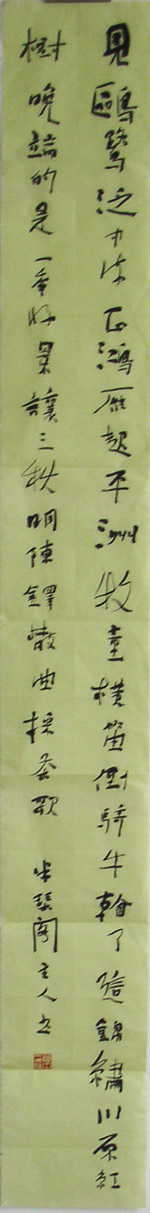 見鷗鷺泛中流正鴻雁起平洲牧童橫笛倒騎牛翰了這錦繡川原紅
樹晚端的是一年好景讓三秋明陳鐸散曲採茶歌 半琴閣主人書